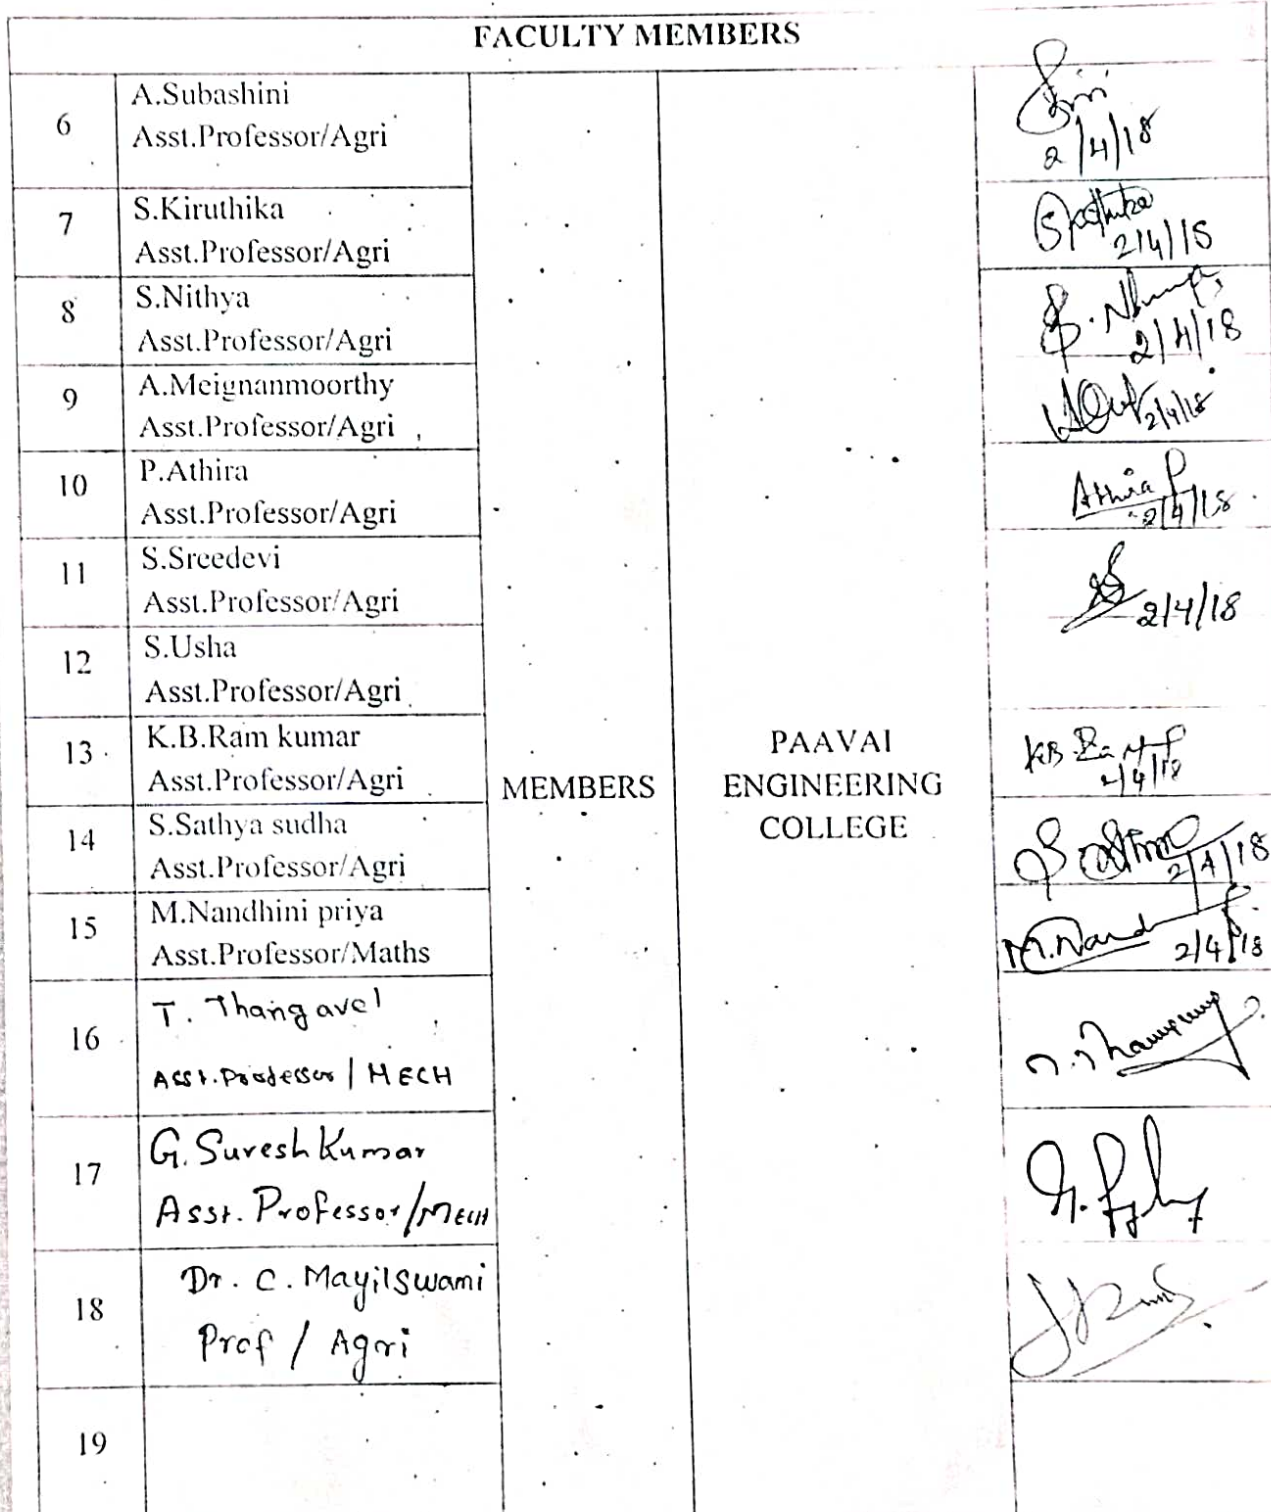 FACULTY MEMBERS
6
A.Subashini
Asst.Professor/Agri
2/4/18
7
S.Kiruthika
Asst.Professor/Agri
2/4/18
8
S.Nithya
Asst.Professor/Agri
2/4/18
9
A.Meignanmoorthy
Asst.Professor/Agri
2/4/18
10
P.Athira
Asst.Professor/Agri
Athira P
2/4/18
11
S.Sreedevi
Asst.Professor/Agri
2/4/18
12
S.Usha
Asst.Professor/Agri
13
K.B.Ram kumar
Asst.Professor/Agri
2/4/18
MEMBERS
PAAVAI
ENGINEERING
COLLEGE
14
S.Sathya sudha
Asst.Professor/Agri
2/4/18
15
M.Nandhini priya
Asst.Professor/Maths
M.Nand
2/4/18
16
T. Thangavel
Asst.Professor / MECH
17
G. Suresh Kumar
Asst. Professor/MECH
18
Dr. C. Mayilswami
Prof / Agri
19